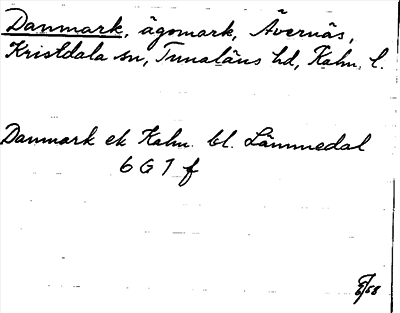 Danmark, ägomark, Ävernäs,
Kristdala sn, Tunaläns hd, Kalm. l.
Danmark ek Kalm. bl. Lämmedal
6 G 7 f